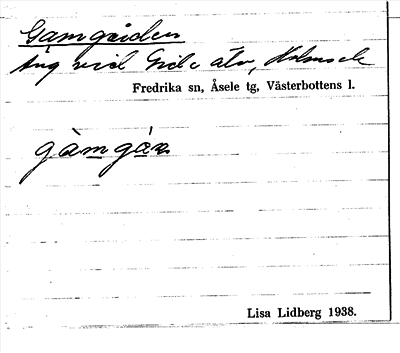 Gamgården
Äng vid Gide älv, Holmsele
Fredrika sn, Åsele tg, Västerbottens l.
gàmgá
Lisa Lidberg 1938.